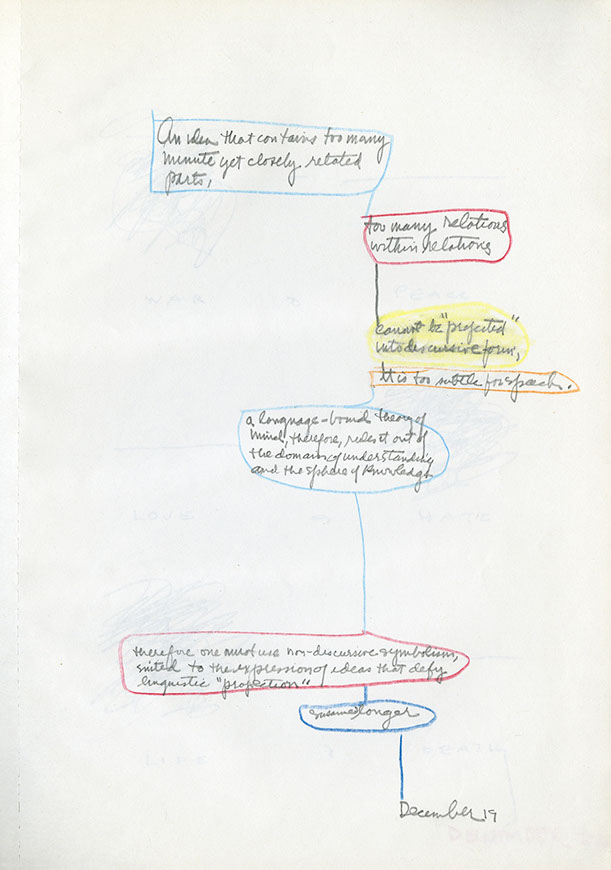 An idea that contains too many
minute yet closely related
parts,
too many relations
within relations
cannot be "projected"
into discursive form,
It is too subtle for speech.
a language-bound theory of
mind, therefore, rules it out of
the domain of understanding
and the sphere of knowledge
therefore one must use non-discursive symbolism,
suited to the expression of ideas that defy
linguistic "projection"
WAR
PEACE
LOVE
HATE
LIFE
DEATH
December 19